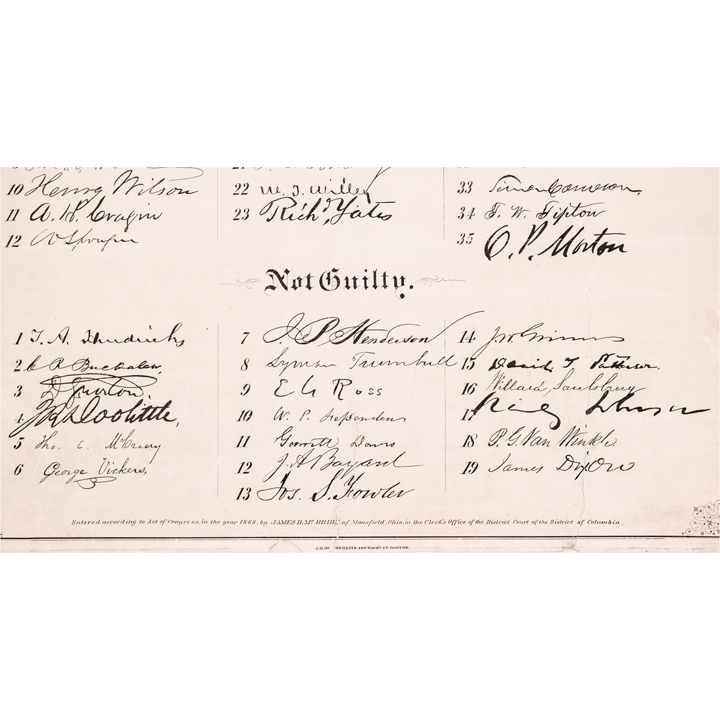 10 Henry Wilson
11 A. H. Cragin
12 W Sprague
22 W. T. Willey
23 Richd. Yates
33 Simon Cameron.
34 T. W. Tipton
35 O. P. Morton
Not Guilty.
1 T. A. Hendricks
2 C R Buckalew.
3 D Norton
4 J R Doolittle.
5 Tho. C. McCreery
6 George Vickers.
7 J. B Henderson
8 Lyman Trumbull
9 E G Ross
10 W. P. Fessenden
11 Garrett Davis
12 J. A Bayard
13 Jos. S. Fowler
14 J W Grimes
15 David T Patterson
16 Willard Saulsbury
17 Reverdy Johnson
18 P. G. Van Winkle
19 James Dixon
Entered according to Act of Congress, in the year 1868, by JAMES D. Mc BRIDE, of Mansfield, Ohio, in the Clerk's Office of the District Court of the District of Columbia.